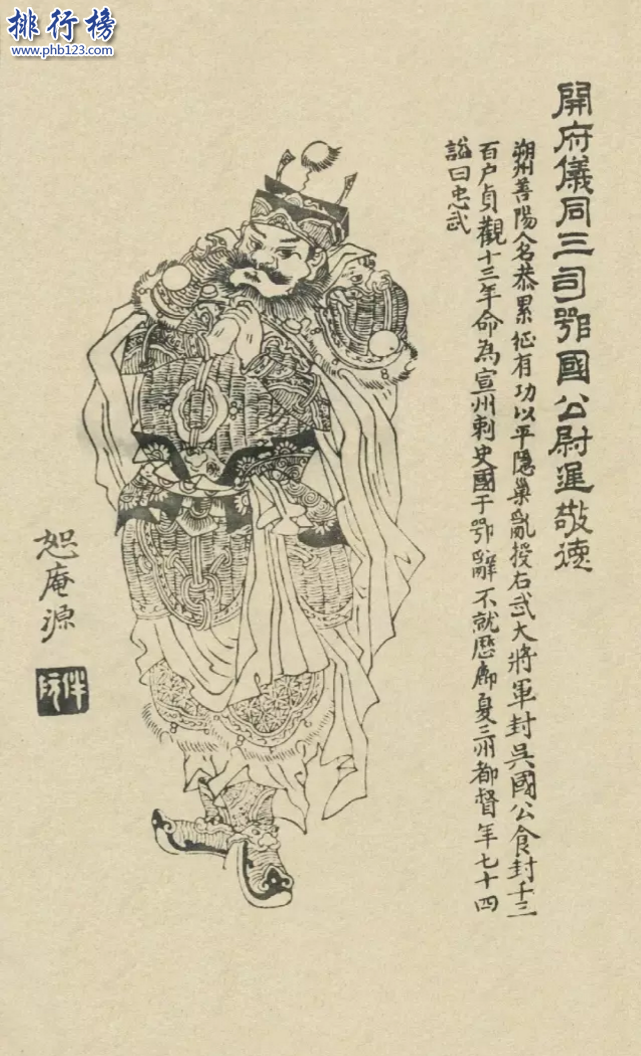 排行榜
www.phb123.com
開府儀同三司鄂國公尉遲敬德
朔州善陽人名恭累征有功以平隱巢亂授右武大將軍封吳國公食封千三
百户貞觀十三年命為宣州刺史國于鄂辭不就歷鄜夏三州都督年七十四
謚曰忠武
恕庵源
伴阮